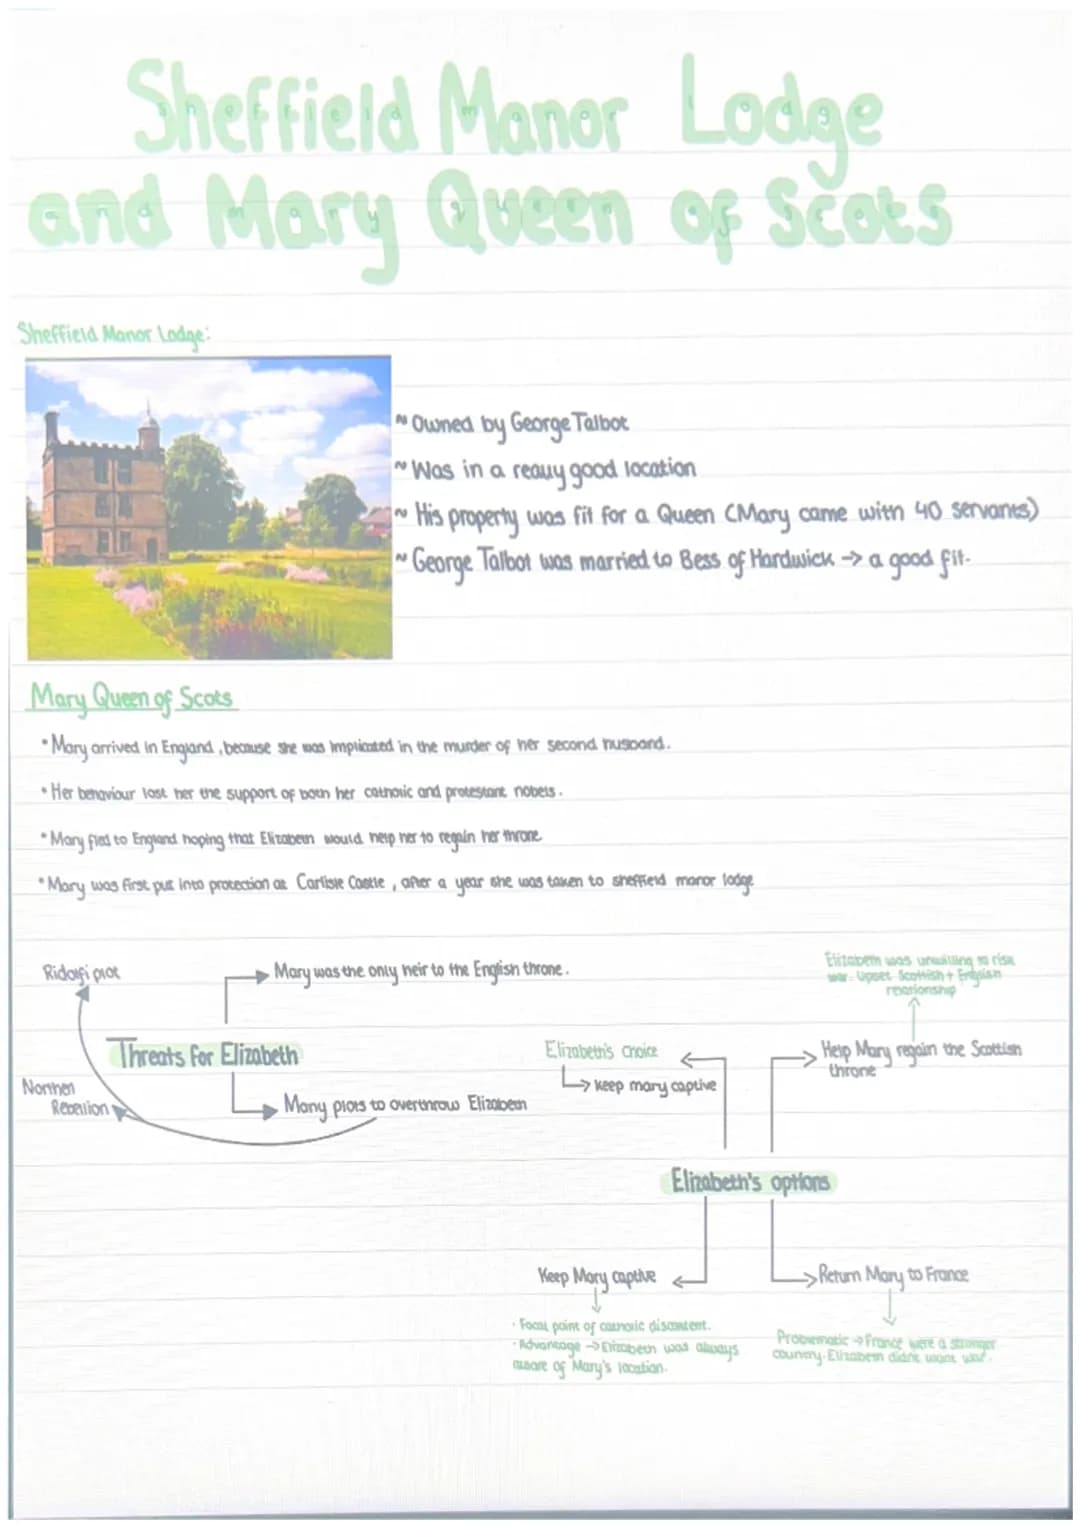 Sheffield Manor Lodge
and Mary Queen of Scots
Sheffield Manor Lodge:
~ Owned by George Talbot
~ Was in a really good location
~ His property was fit for a Queen (Mary came with 40 servants)
~ George Talbot was married to Bess of Hardwick → a good fit.
Mary Queen of Scots
• Mary arrived in England, because she was implicated in the murder of her second husband.
• Her behaviour lost her the support of both her catholic and protestant nobels.
• Mary fled to England hoping that Elizabeth would help her to regain her throne
• Mary was first put into protection at Carlisle Castle, after a year she was taken to sheffield manor lodge
Ridolfi plot
Mary was the only heir to the English throne.
Threats for Elizabeth
Northen
Rebellion
Many plots to overthrow Elizabeth
Elizabeth was unwilling to risk
war. Upset Scottish + English
relationship
Elizabeth's choice
keep mary captive
Help Mary regain the Scottish
throne
Elizabeth's options
Keep Mary captive
Return Mary to France
• Focal point of catholic discontent.
• Advantage → Elizabeth was always
aware of Mary's location.
Problematic → France were a stronger
country. Elizabeth didnt want war.